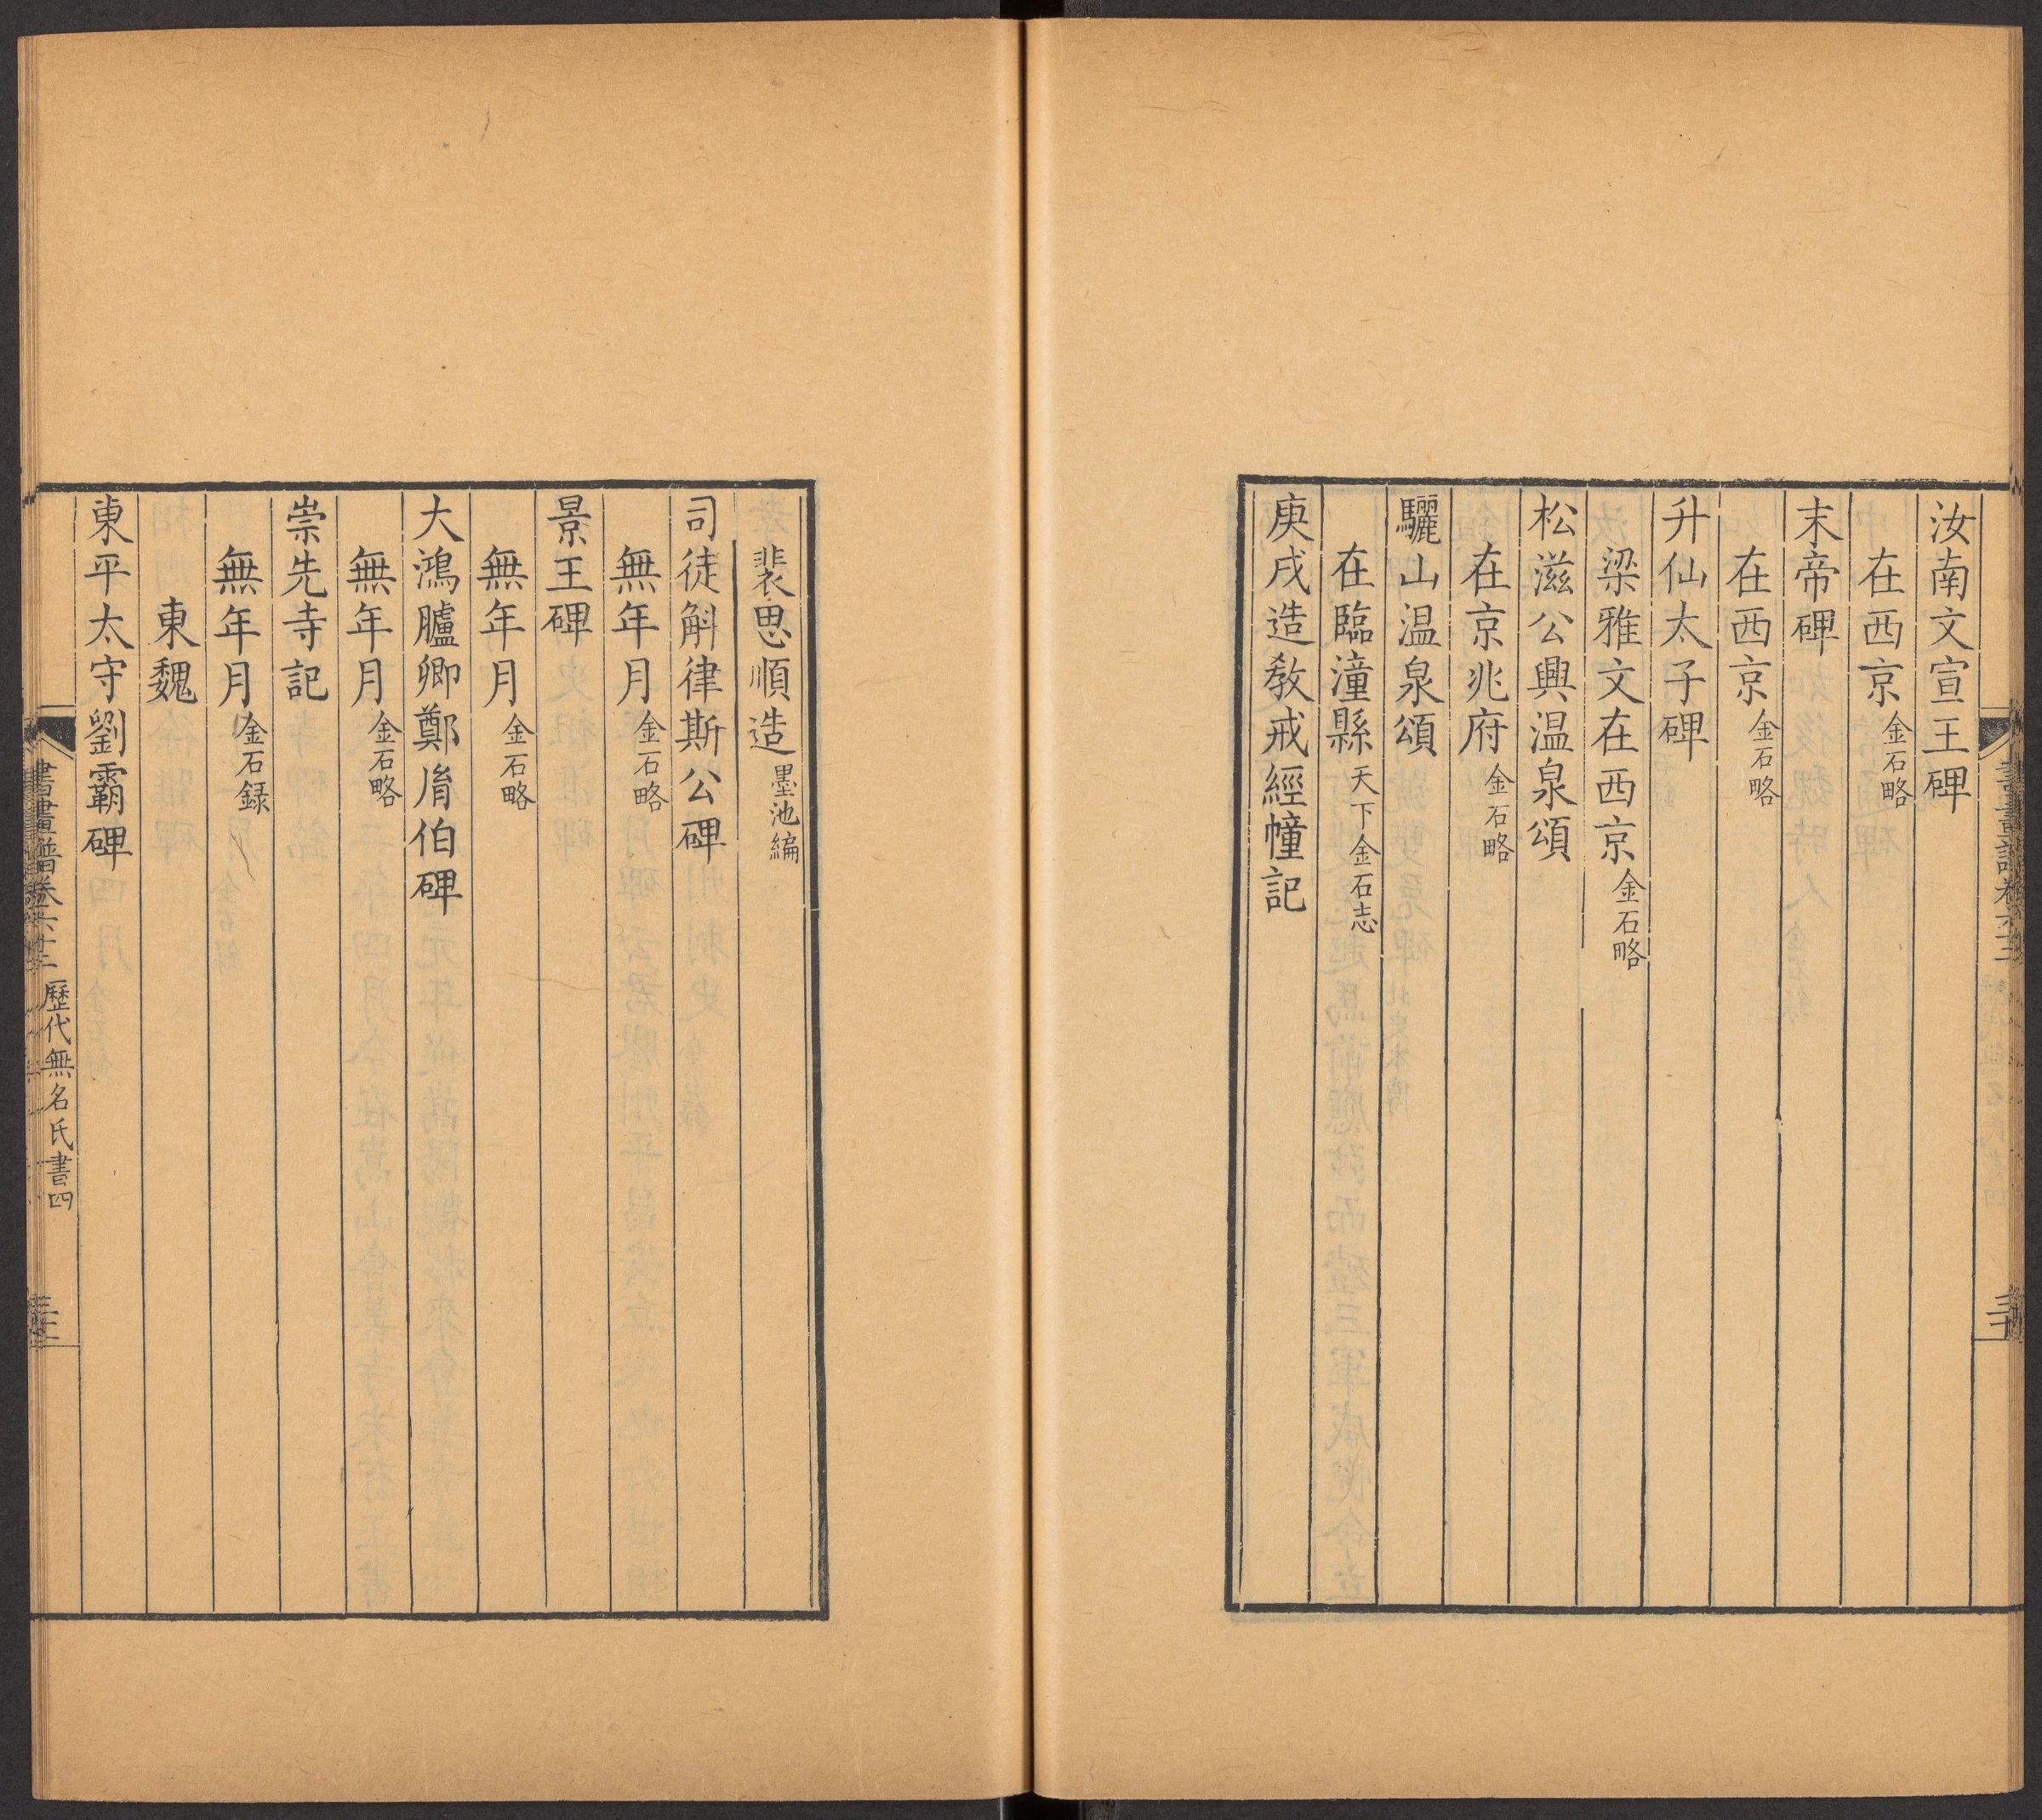 汝南文宣王碑
在西京金石略
末帝碑
在西京金石略
升仙太子碑
梁雅文在西京金石略
松滋公興温泉頌
在京兆府金石略
驪山温泉頌
在臨潼縣天下金石志
庚戌造敎戒經幢記
裴思順造墨池編
司徒斛律斯公碑
無年月金石略
景王碑
無年月金石略
大鴻臚卿鄭胤伯碑
無年月金石略
崇先寺記
無年月金石録
東魏
東平太守劉霸碑
書畫譜卷六十三 歷代無名氏書四